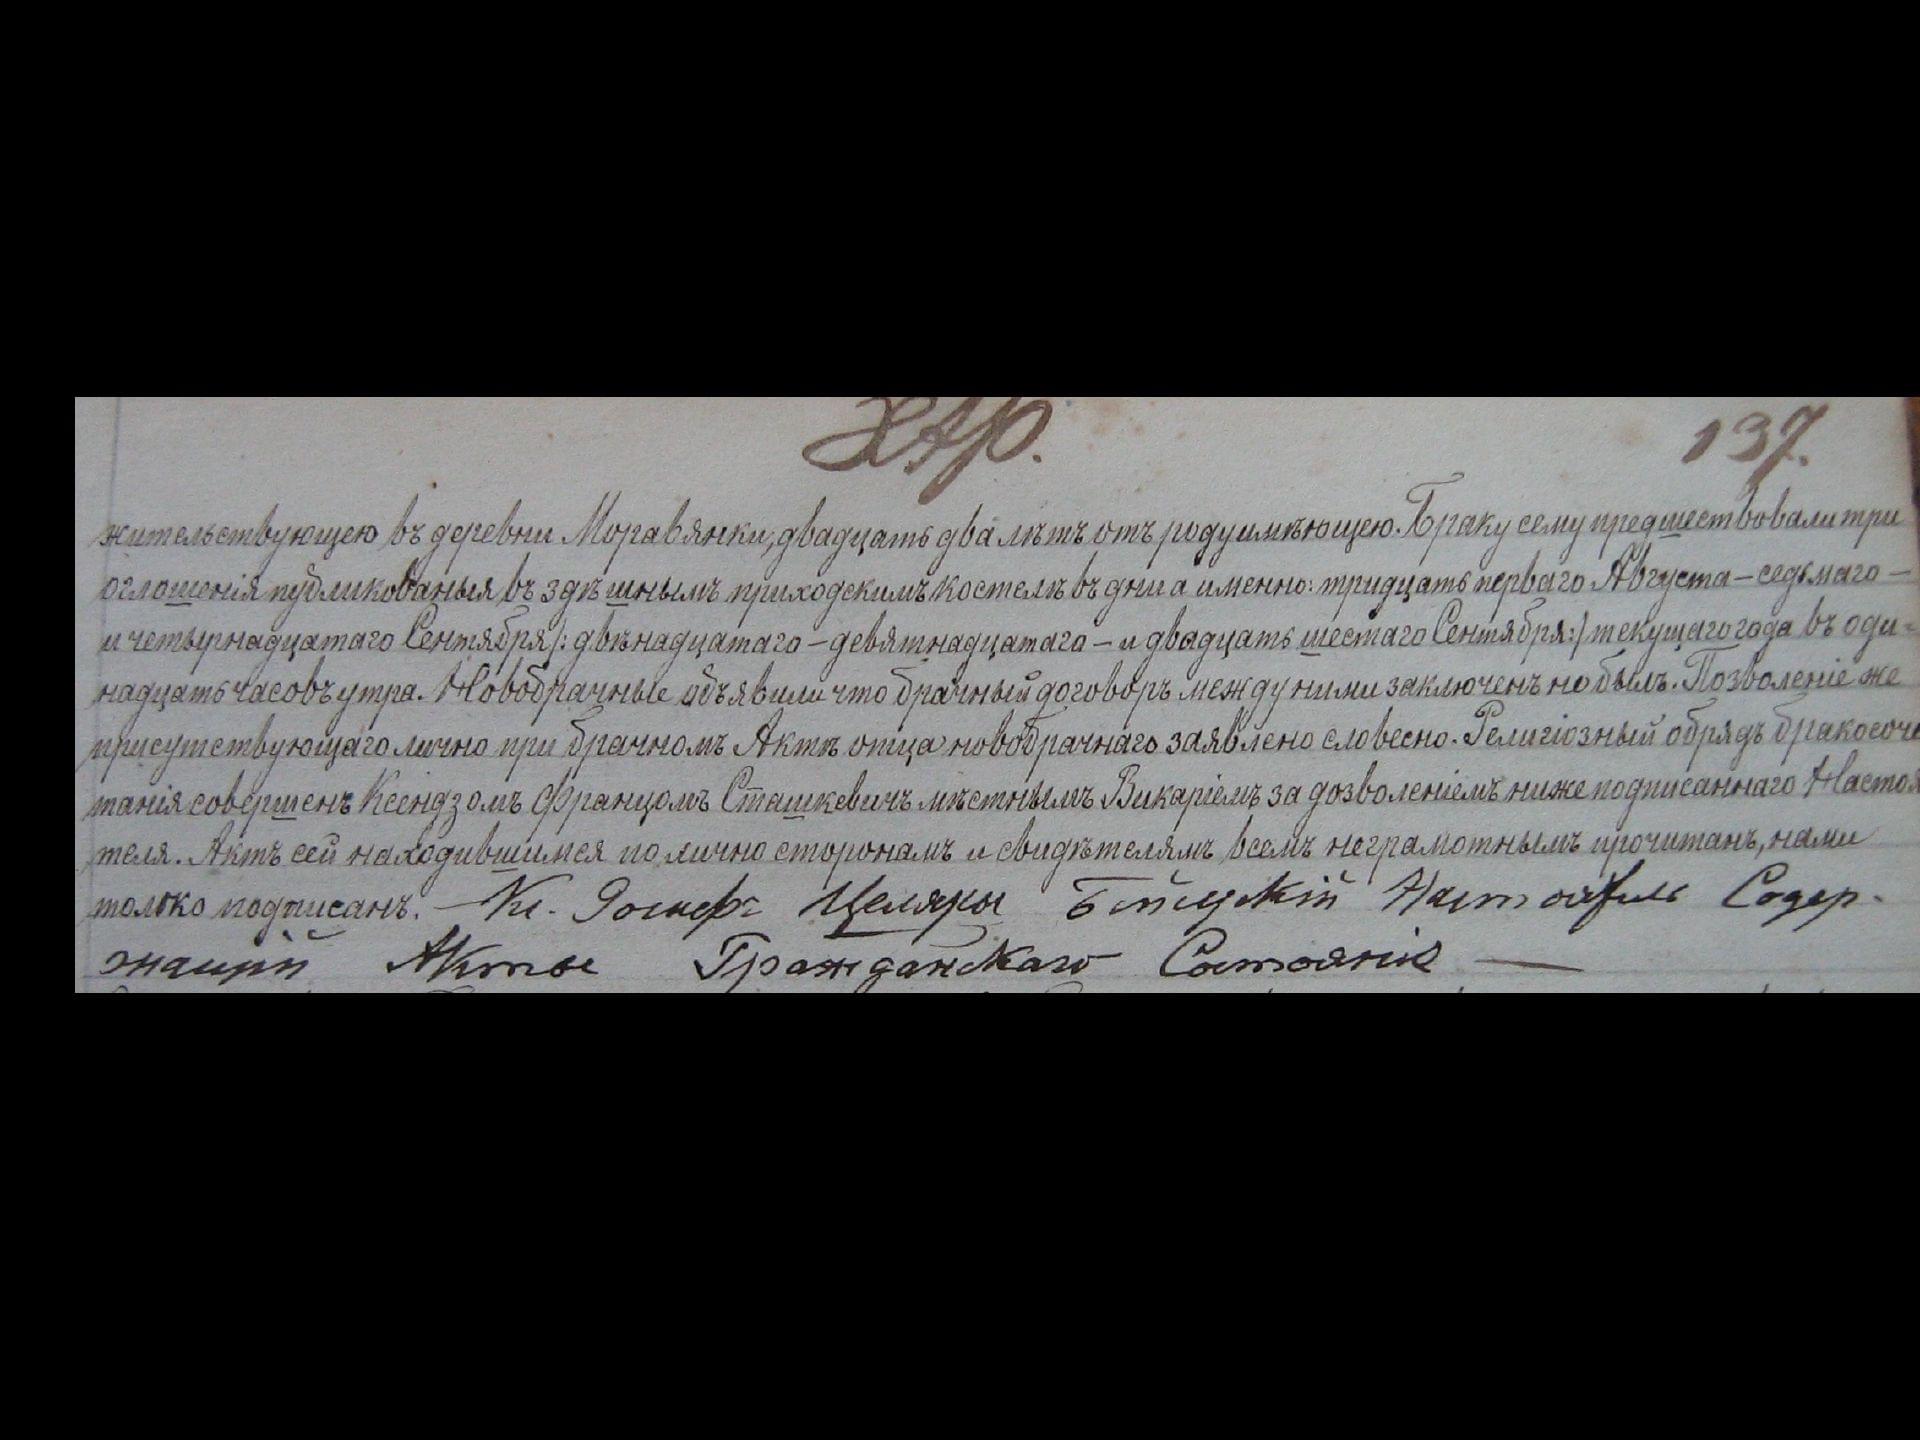 137.
жительствующею въ деревни Моравянки, двадцать два лѣтъ отъ роду имѣющею. Браку сему предшествовали три
оглошенія публикованыя въ здѣшнымъ приходскимъ костелѣ въ дни а именно: тридцать перваго Августа – седьмаго –
и четырнадцатаго Сентября /: двѣнадцатаго – девятнадцатаго – и двадцать шестаго Сентября :/ текущаго года въ оди=
надцать часовъ утра. Новобрачные объявили что брачный договоръ между ними заключенъ не былъ. Позволеніе же
присутствующаго лично при брачномъ Актѣ отца новобрачнаго заявлено словесно. Религіозный обрядъ бракосоче
танія совершенъ Ксендзомъ Францомъ Сташкевичъ мѣстнымъ Викаріемъ за дозволеніемъ ниже подписаннаго Настоя
теля. Актъ сей находившимся по лично сторонамъ и свидѣтелямъ всемъ неграмотнымъ прочитанъ, нами
только подписанъ. — Кс. Іосифъ Настоятель Содер-
жащій Акты Гражданскаго Состоянія —